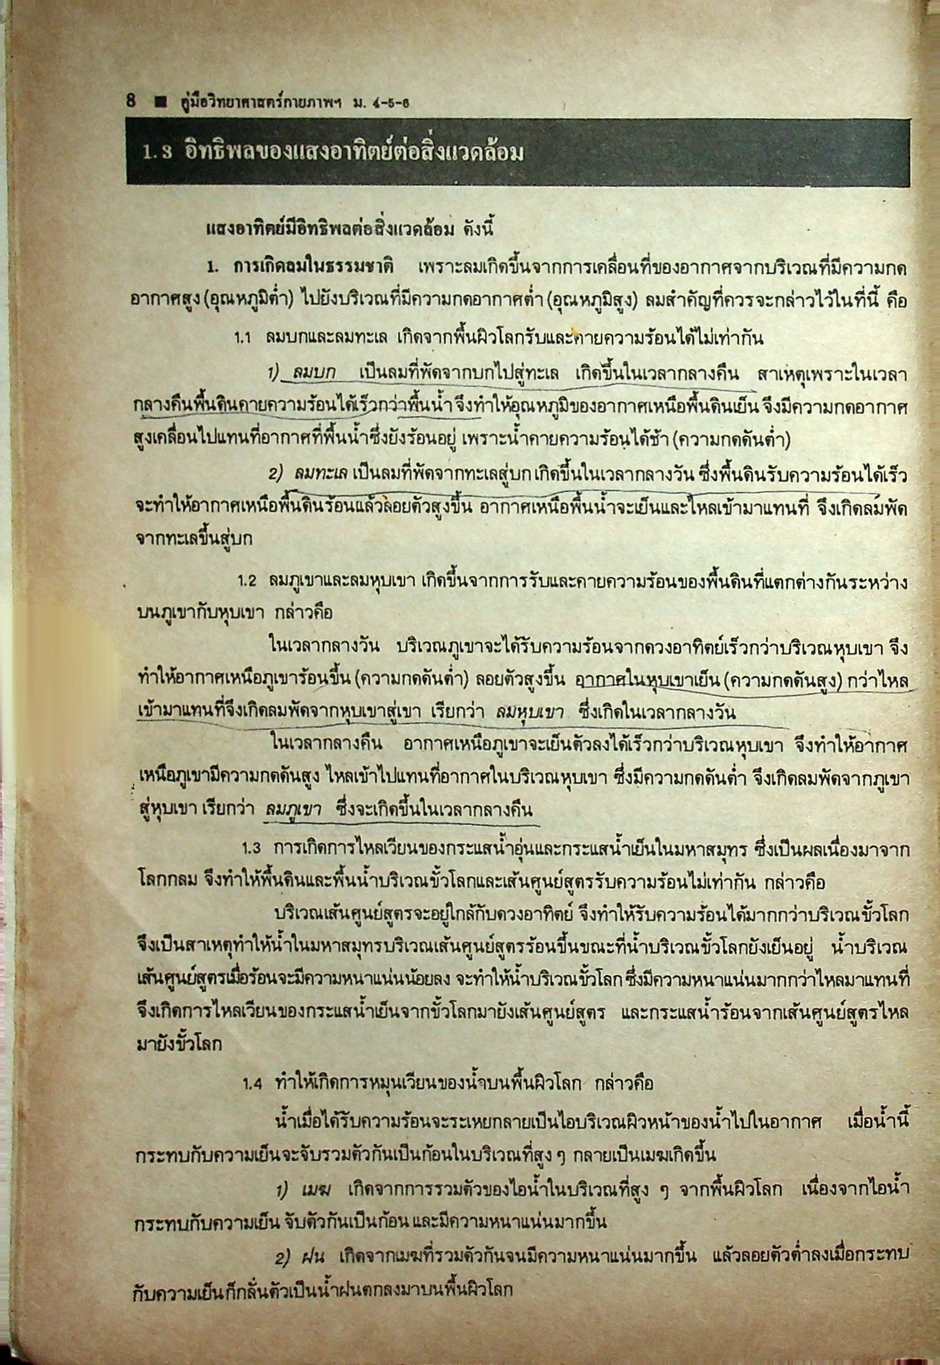 8 ■ คู่มือวิทยาศาสตร์กายภาพฯ ม. 4-5-6
1.3 อิทธิพลของแสงอาทิตย์ต่อสิ่งแวดล้อม
แสงอาทิตย์มีอิทธิพลต่อสิ่งแวดล้อม ดังนี้
1. การเกิดลมในธรรมชาติ เพราะลมเกิดขึ้นจากการเคลื่อนที่ของอากาศจากบริเวณที่มีความกด
อากาศสูง (อุณหภูมิต่ำ) ไปยังบริเวณที่มีความกดอากาศต่ำ (อุณหภูมิสูง) ลมสำคัญที่ควรจะกล่าวไว้ในที่นี้ คือ
1.1 ลมบกและลมทะเล เกิดจากพื้นผิวโลกรับและคายความร้อนได้ไม่เท่ากัน
1) ลมบก เป็นลมที่พัดจากบกไปสู่ทะเล เกิดขึ้นในเวลากลางคืน สาเหตุเพราะในเวลา
กลางคืนพื้นดินคายความร้อนได้เร็วกว่าพื้นน้ำ จึงทำให้อุณหภูมิของอากาศเหนือพื้นดินเย็น จึงมีความกดอากาศ
สูงเคลื่อนไปแทนที่อากาศที่พื้นน้ำซึ่งยังร้อนอยู่ เพราะน้ำคายความร้อนได้ช้า (ความกดดันต่ำ)
2) ลมทะเล เป็นลมที่พัดจากทะเลสู่บก เกิดขึ้นในเวลากลางวัน ซึ่งพื้นดินรับความร้อนได้เร็ว
จะทำให้อากาศเหนือพื้นดินร้อนแล้วลอยตัวสูงขึ้น อากาศเหนือพื้นน้ำจะเย็นและไหลเข้ามาแทนที่ จึงเกิดลมพัด
จากทะเลขึ้นสู่บก
1.2 ลมภูเขาและลมหุบเขา เกิดขึ้นจากการรับและคายความร้อนของพื้นดินที่แตกต่างกันระหว่าง
บนภูเขากับหุบเขา กล่าวคือ
ในเวลากลางวัน บริเวณภูเขาจะได้รับความร้อนจากดวงอาทิตย์เร็วกว่าบริเวณหุบเขา จึง
ทำให้อากาศเหนือภูเขาร้อนขึ้น (ความกดดันต่ำ) ลอยตัวสูงขึ้น อากาศในหุบเขาเย็น (ความกดดันสูง) กว่าไหล
เข้ามาแทนที่จึงเกิดลมพัดจากหุบเขาสู่เขา เรียกว่า ลมหุบเขา ซึ่งเกิดในเวลากลางวัน
ในเวลากลางคืน อากาศเหนือภูเขาจะเย็นตัวลงได้เร็วกว่าบริเวณหุบเขา จึงทำให้อากาศ
เหนือภูเขามีความกดดันสูง ไหลเข้าไปแทนที่อากาศในบริเวณหุบเขา ซึ่งมีความกดดันต่ำ จึงเกิดลมพัดจากภูเขา
สู่หุบเขา เรียกว่า ลมภูเขา ซึ่งจะเกิดขึ้นในเวลากลางคืน
1.3 การเกิดการไหลเวียนของกระแสน้ำอุ่นและกระแสน้ำเย็นในมหาสมุทร ซึ่งเป็นผลเนื่องมาจาก
โลกกลม จึงทำให้พื้นดินและพื้นน้ำบริเวณขั้วโลกและเส้นศูนย์สูตรรับความร้อนไม่เท่ากัน กล่าวคือ
บริเวณเส้นศูนย์สูตรจะอยู่ใกล้กับดวงอาทิตย์ จึงทำให้รับความร้อนได้มากกว่าบริเวณขั้วโลก
จึงเป็นสาเหตุทำให้น้ำในมหาสมุทรบริเวณเส้นศูนย์สูตรร้อนขึ้นขณะที่น้ำบริเวณขั้วโลกยังเย็นอยู่ น้ำบริเวณ
เส้นศูนย์สูตรเมื่อร้อนจะมีความหนาแน่นน้อยลง จะทำให้น้ำบริเวณขั้วโลก ซึ่งมีความหนาแน่นมากกว่าไหลมาแทนที่
จึงเกิดการไหลเวียนของกระแสน้ำเย็นจากขั้วโลกมายังเส้นศูนย์สูตร และกระแสน้ำร้อนจากเส้นศูนย์สูตรไหล
มายังขั้วโลก
1.4 ทำให้เกิดการหมุนเวียนของน้ำบนพื้นผิวโลก กล่าวคือ
น้ำเมื่อได้รับความร้อนจะระเหยกลายเป็นไอบริเวณผิวหน้าของน้ำไปในอากาศ เมื่อน้ำนี้
กระทบกับความเย็นจะจับรวมตัวกันเป็นก้อนในบริเวณที่สูง ๆ กลายเป็นเมฆเกิดขึ้น
1) เมฆ เกิดจากการรวมตัวของไอน้ำในบริเวณที่สูง ๆ จากพื้นผิวโลก เนื่องจากไอน้ำ
กระทบกับความเย็น จับตัวกันเป็นก้อน และมีความหนาแน่นมากขึ้น
2) ฝน เกิดจากเมฆที่รวมตัวกันจนมีความหนาแน่นมากขึ้น แล้วลอยตัวต่ำลงเมื่อกระทบ
กับความเย็นก็กลั่นตัวเป็นน้ำฝนตกลงมาบนพื้นผิวโลก